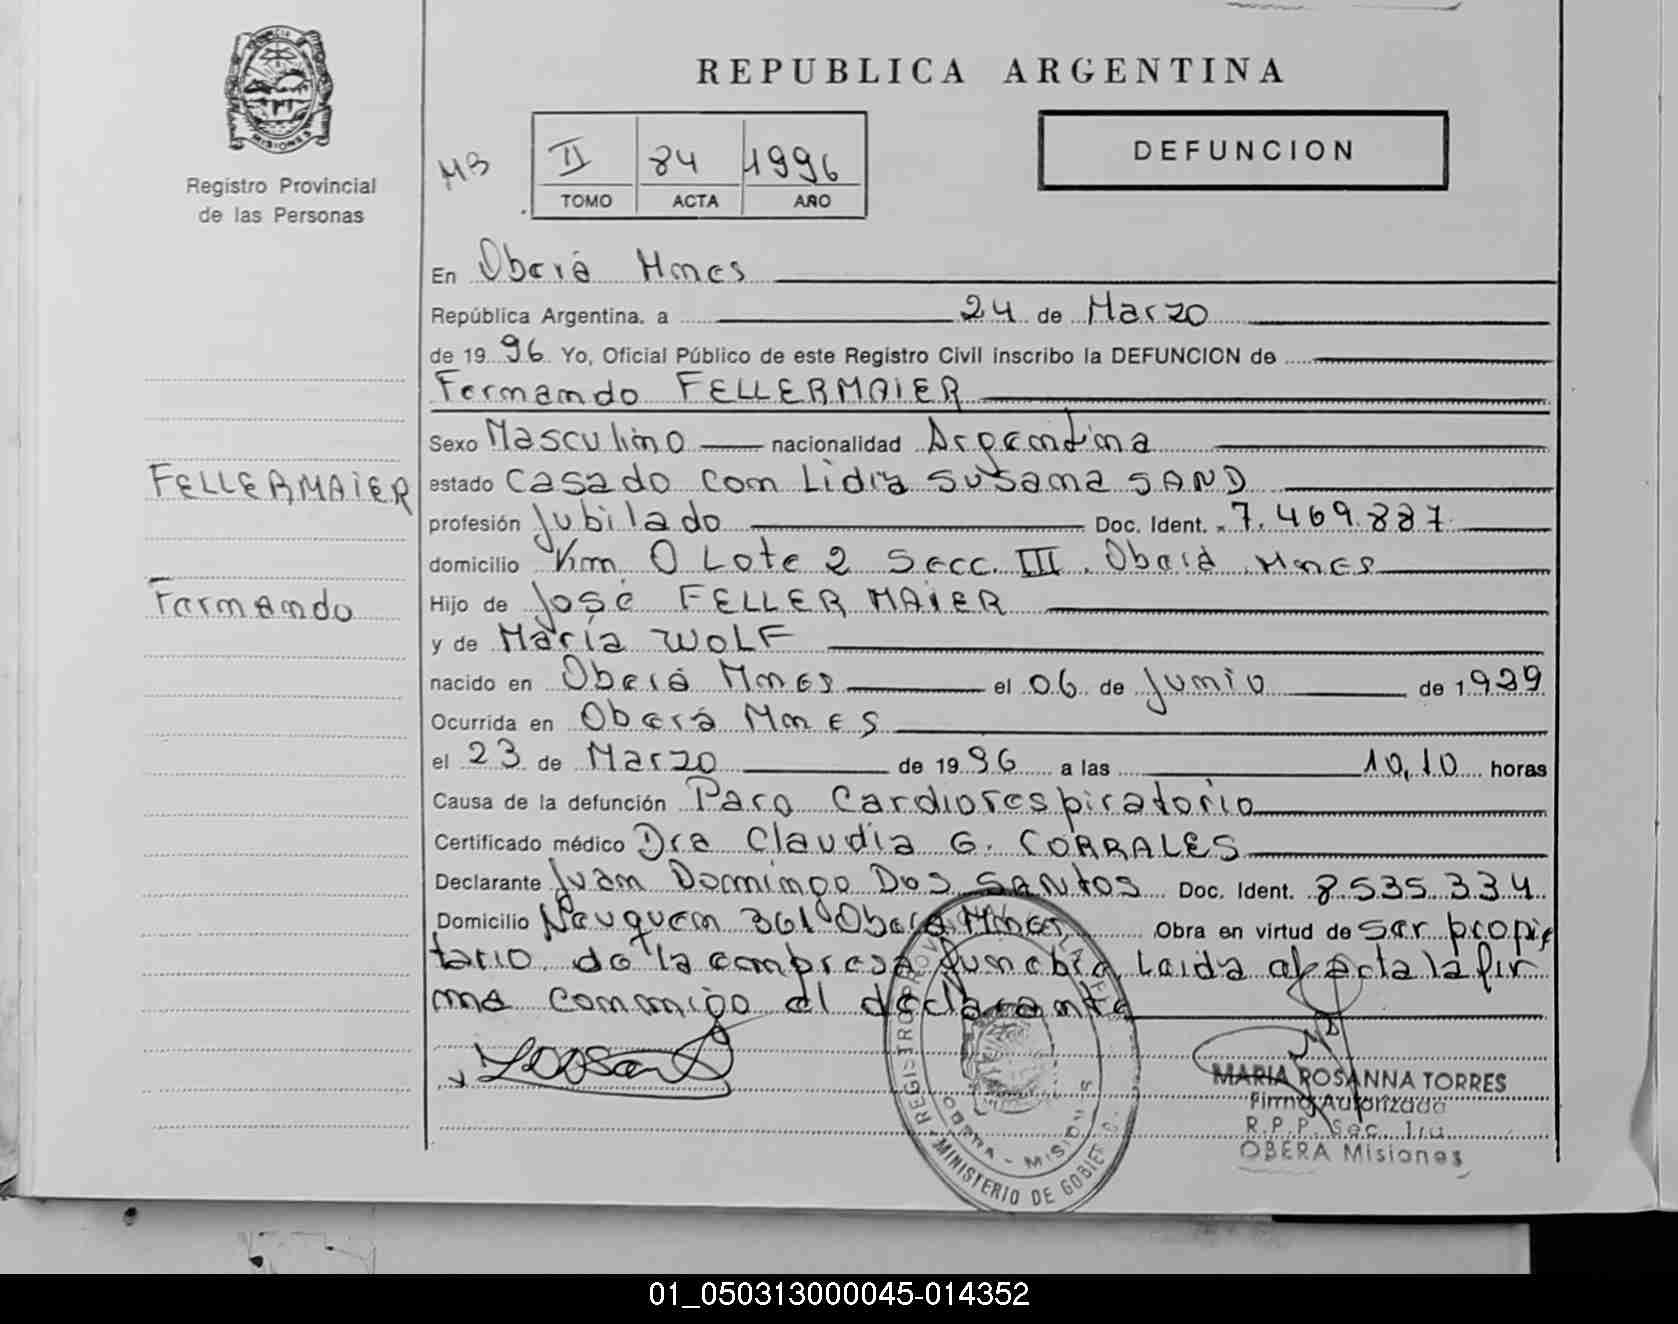 REPUBLICA ARGENTINA
PROVINCIA DE
MISIONES
Registro Provincial
de las Personas
MB
II 84 1996
TOMO ACTA AÑO
DEFUNCION
En Oberá Mnes
República Argentina, a 24 de Marzo
de 1996 Yo, Oficial Público de este Registro Civil inscribo la DEFUNCION de
Fernando FELLERMAIER
Sexo Masculino nacionalidad Argentina
FELLERMAIER
estado Casado con Lidia Susana SAND
profesión Jubilado Doc. Ident. 7.469.887
domicilio Km 0 Lote 2 Secc. III. Oberá Mnes
Fernando
Hijo de José FELLERMAIER
y de María WOLF
nacido en Oberá Mnes el 06 de Junio de 1939
Ocurrida en Oberá Mnes
el 23 de Marzo de 1996 a las 10,10 horas
Causa de la defunción Paro Cardiorespiratorio
Certificado médico Dra Claudia G. CORRALES
Declarante Juan Domingo Dos SANTOS Doc. Ident. 8.535.334
Domicilio Neuquen 361 Oberá Mnes, Obra en virtud de ser propie
tario de la empresa funebre, Leida el acta la fir
ma conmigo el declarante
REGISTRO PROV
OBERA - MISIONES
MINISTERIO DE GOBIE
MARIA ROSANNA TORRES
Firma Autorizada
R.P.P. Sec. 1ra
OBERA Misiones
01_050313000045-014352